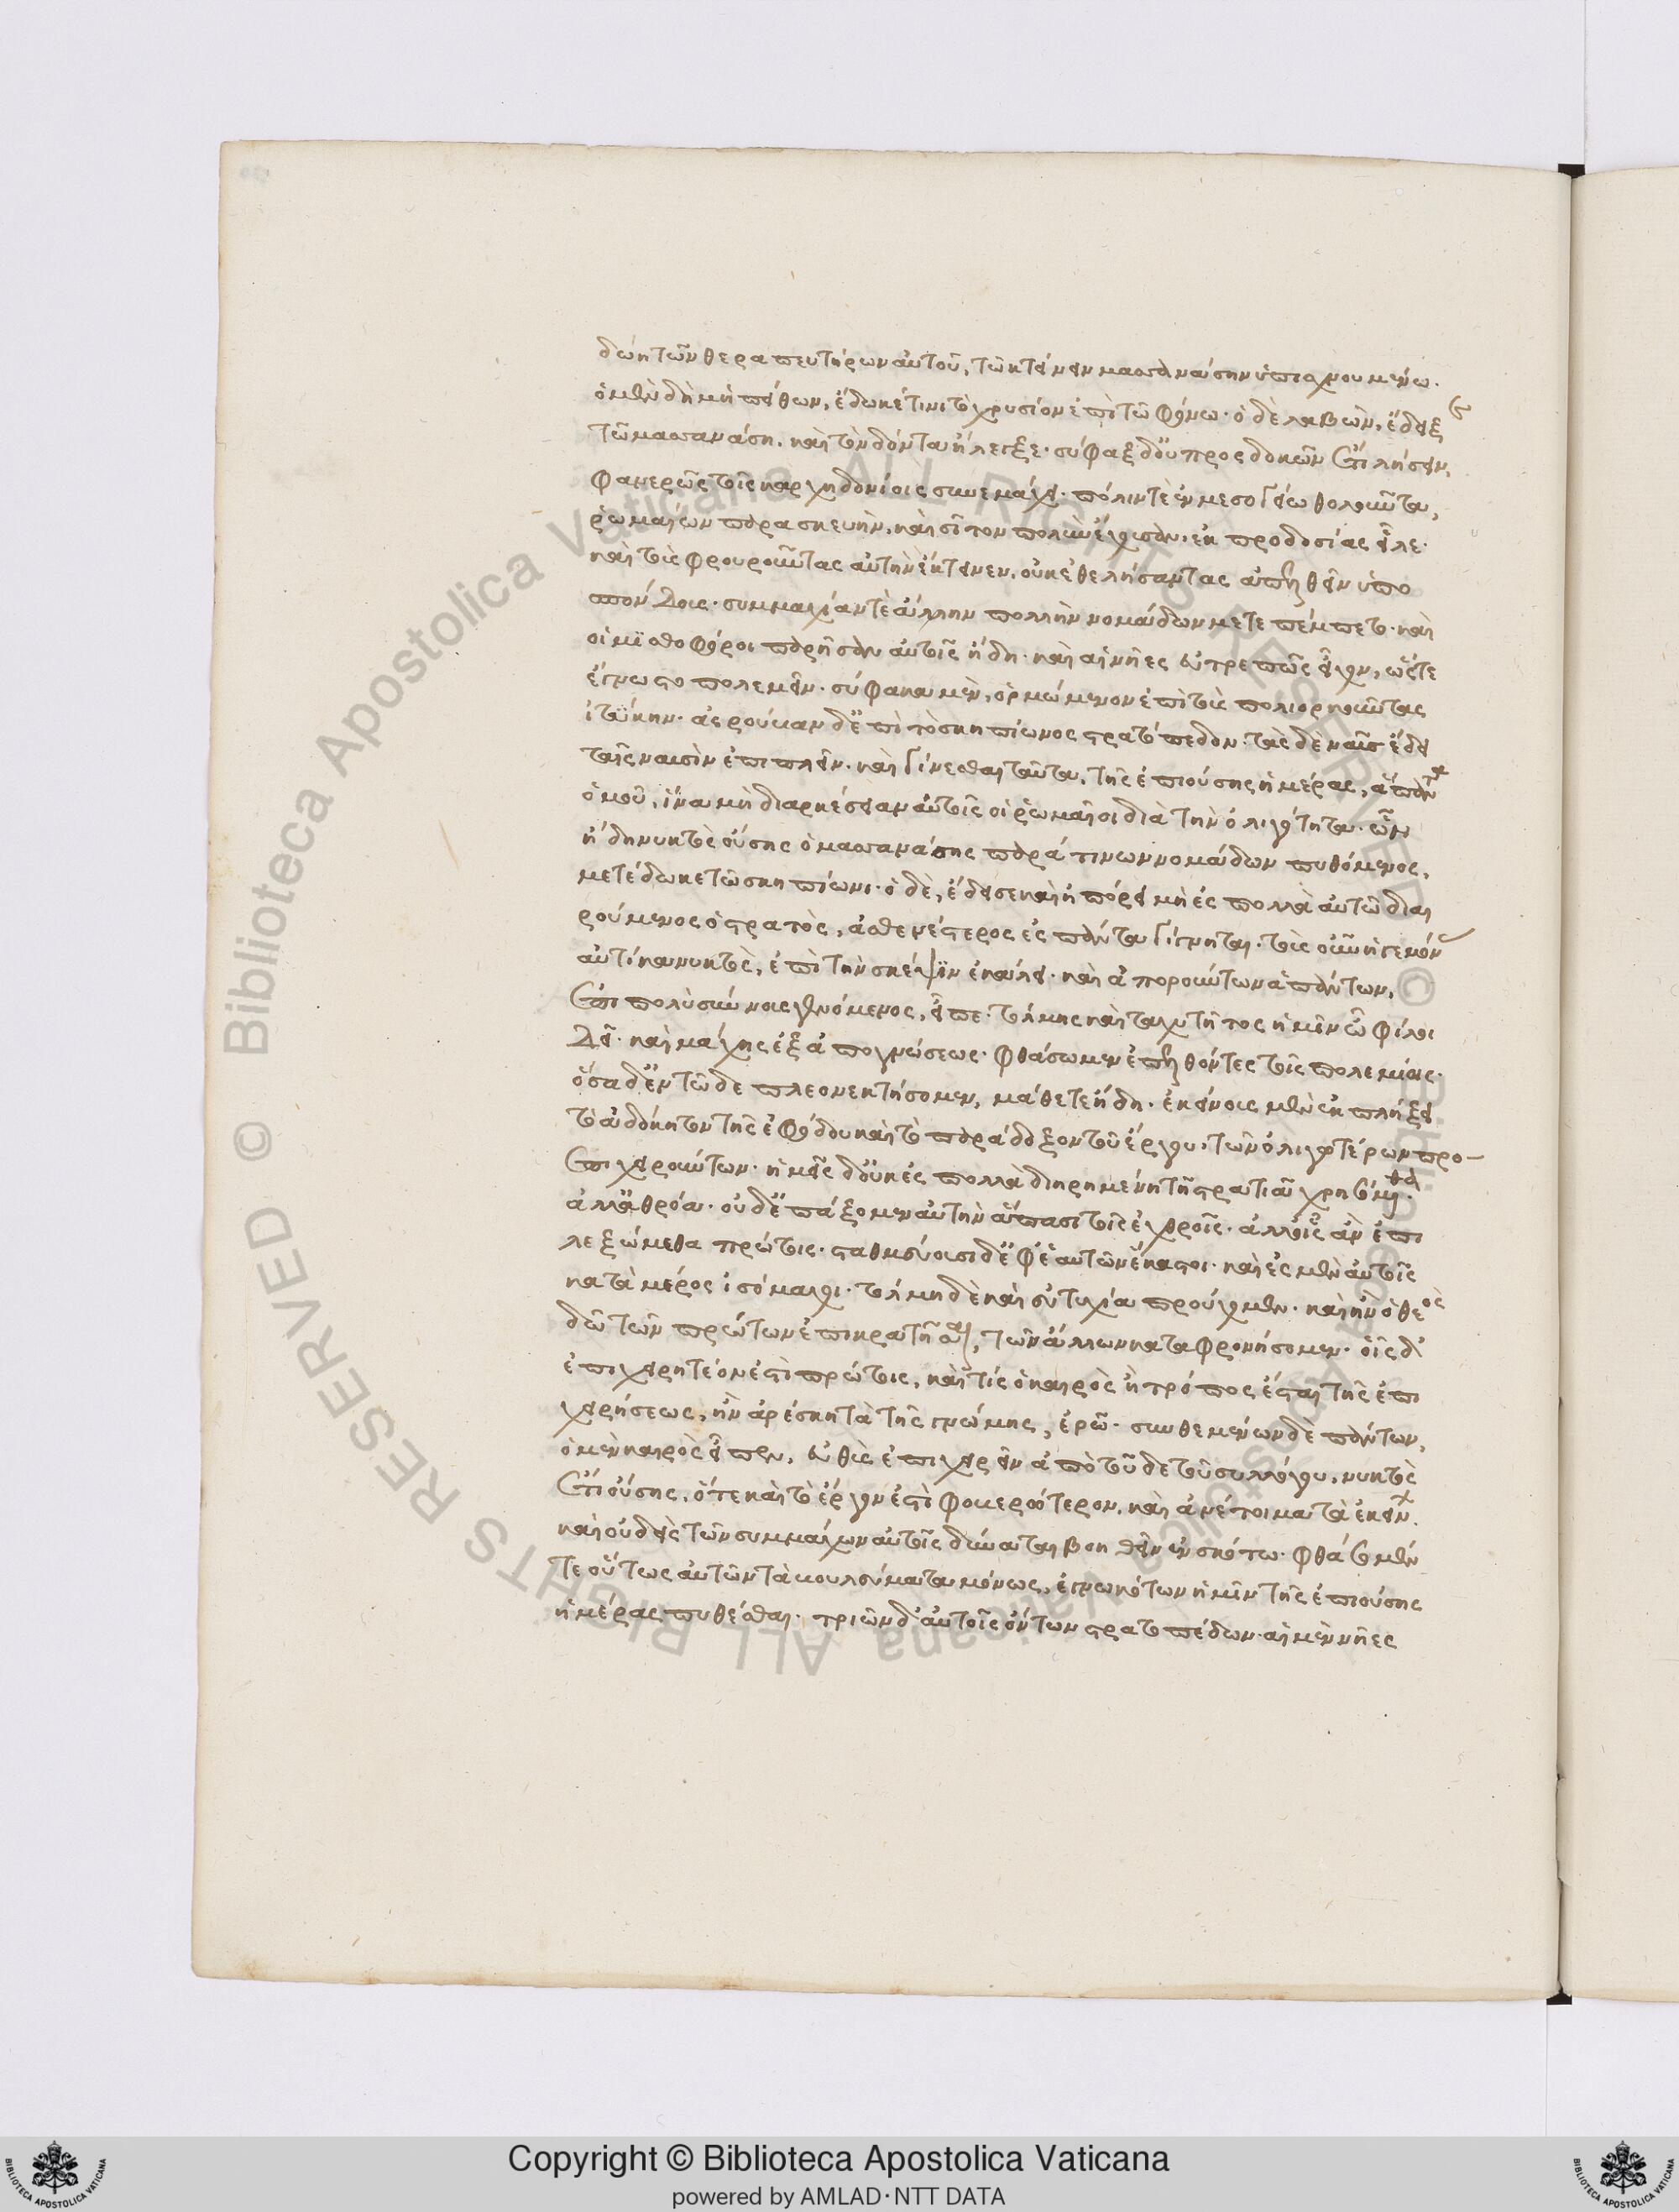 δώη τῶν θεραπευτήρων αὐτοῦ, τῶ κτείνειν μασσανάσσην ὑπισχνουμένω.
ὁ μὲν δὴ μὴ πείθων, ἔδωκέ τινι τὸ χρυσίον ἐπὶ τῶ φόνω. ὁ δὲ λαβὼν, ἔδειξε
τῶ μασσανάση. καὶ τὸν δόντα ἤλεγξε. σύφαξ δ' οὐ προσδοκῶν ἔτι λήσειν,
φανερῶς τοῖς καρχηδονίοις συνεμάχει. πόλιν τὲ ἐν μεσογείω θολοῦντα,
ῥωμαίων παρασκευὴν, καὶ σῖτον πολὺν ἔχουσαν, ἐκ προδοσίας εἷλε.
καὶ τοὺς φρουροῦντας αὐτὴν ἔκτεινεν, οὐκ ἐθελήσαντας ἀπελθεῖν ὑπο
σπόνδους. συμμαχίαν τὲ ἄλλην πολλὴν νομάδων μετεπέμπετο. καὶ
οἱ μισθοφόροι παρῆσαν αὐτοῖς ἤδη. καὶ αἱ νῆες εὐτρεπῶς εἶχον, ὥστε
ἔγνωστο πολεμεῖν. σύφακα μὲν, ὁρμώμενον ἐπὶ τοὺς πολιορκοῦντας
ἰτύκην. ἀσρούβαν δ' ἐπὶ τὸ σκηπίωνος στρατόπεδον. τὰς δὲ ναῦς ἔδει
ταῖς ναυσὶν ἐπιπλεῖν. καὶ γίνεσθαι ταῦτα, τῆς ἐπιούσης ἡμέρας, ἅπαντα
ὁμοῦ, ἵνα μὴ διαρκέσειαν αὐτοῖς οἱ ῥωμαῖοι διὰ τὴν ὀλιγότητα. ὧν
ἤδη νυκτὸς οὔσης ὁ μασσανάσσης παρά τινων νομάδων πυθόμενος,
μετέδωκε τῶ σκηπίωνι. ὁ δὲ, ἔδεισε καὶ ἠπόρει μὴ ἐς πολλὰ αὐτῶ διαι
ρούμενος ὁ στρατὸς, ἀσθενέστερος ἐς πάντα γίγνηται. τοὺς οὖν ἡγεμόνας
αὐτίκα νυκτὸς, ἐπὶ τὴν σκέψιν ἐκάλει. καὶ ἀπορούντων ἁπάντων,
ἐπι πολὺ σύννους γενόμενος, εἶπε. τόλμης καὶ ταχυτῆτος ἡμῖν ὦ φίλοι
δεῖ. καὶ μάχης ἐξ ἀπογνώσεως. φθάσωμεν ἐπελθόντες τοῖς πολεμίοις.
ὅσα δ' ἐν τῶδε πλεονεκτήσομεν, μάθετε ἤδη. ἐκείνους μὲν ἐκπλήξει
τὸ ἀδόκητον τῆς ἐφόδου καὶ τὸ παράδοξον τοῦ ἔργου, τῶν ὀλιγοτέρων προ-
επιχειρούντων. ἡμεῖς δ' οὐκ ἐς πολλὰ διηρημένη τῆ στρατιᾶ χρησόμεθα.
ἀλλ' ἀθρόα. οὐδ' ἐπάξομεν αὐτὴν ἅπασι τοῖς ἐχθροῖς. ἀλλ' οἷς ἂν ἐπι
λεξώμεθα πρώτοις. σταθμεύουσι δ' ἐφ' ἑαυτῶν ἕκαστοι. καὶ ἐς μὲν αὐτοῖς
κατὰ μέρος ἰσόμαχοι. τόλμη δὲ καὶ εὐτυχία προὔχομεν. καὶ ἢν ὁ θεὸς
δῶ τῶν πρώτων ἐπικρατῆσαι, τῶν ἄλλων καταφρονήσομεν. οἷς δ'
ἐπιχειρητέον ἐστὶ πρώτοις, καὶ τίς ὁ καιρὸς ἢ τρόπος ἔσται τῆς ἐπι
χειρήσεως, ἢν ἀρέσκη τὰ τῆς γνώμης, ἐρῶ. συνθεμένων δὲ πάντων,
ὁ μὲν καιρὸς εἶπεν, εὐθὺς ἐπιχειρεῖν ἀπὸ τοῦδε τοῦ συλλόγου, νυκτὸς
ἔτι οὔσης, ὅτε καὶ τὸ ἔργον ἐστὶ φοβερώτερον, καὶ ἀνέτοιμα τὰ ἐκείνων.
καὶ οὐδεὶς τῶν συμμάχων αὐτοῖς δύναται βοηθεῖν ἐν σκότω. φθάσομέν
τε οὕτως αὐτῶν τὰ βουλεύματα μόνως, ἐγνωκότων ἡμῖν τῆς ἐπιούσης
ἡμέρας πυθέσθαι. τριῶν δ' αὐτοῖς ὄντων στρατοπέδων. αἱ μὲν νῆες
Copyright © Biblioteca Apostolica Vaticana
powered by AMLAD·NTT DATA